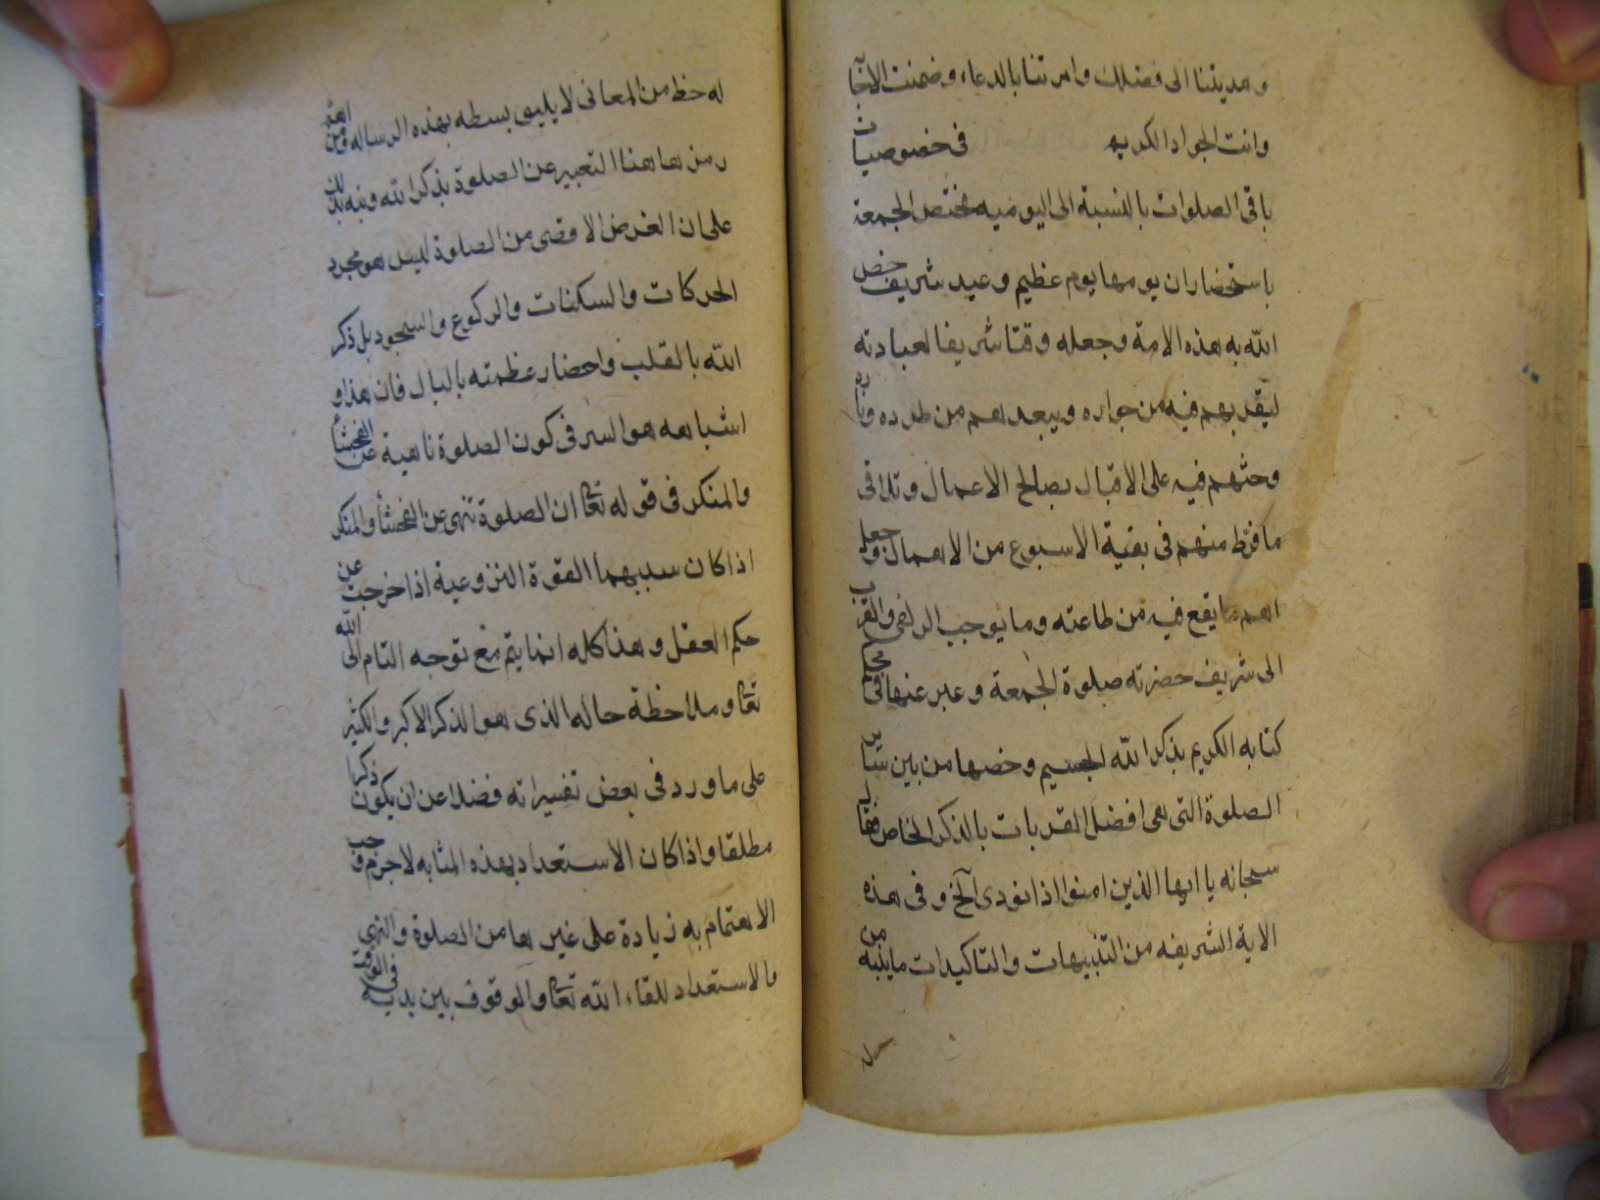 وهديتنا الى فضلك وامرتنا بالدعاء وضمنت الاجابة
وانت الجواد الكريم في خصوصيات
باقى الصلوات بالنسبة الى اليوميه يختص الجمعة
باستحضار ان يومها يوم عظيم وعيد شريف خص
الله به هذه الامة وجعله وقتا شريفا لعبادته
ليقربهم فيه من جواره ويبعدهم من طرده وناره
وحثهم فيه على الاقبال بصالح الاعمال وتلافى
ما فرط منهم فى بقية الاسبوع من الاهمال وجعل
اهم ما يقع فيه من طاعته وما يوجب الزلفى والقرب
الى شريف حضرته صلوة الجمعة وعبر عنها فى محكم
كتابه الكريم بذكر الله الجسيم وخصها من بين سائر
الصلوة التى هى افضل القربات بالذكر الخاص فقال
سبحانه يا ايها الذين امنوا اذا نودى آلخ وفى هذه
الاية الشريفه من التنبيهات والتاكيدات ما ينبه من
له حظ من المعانى لا يليق بسطه بهذه الرساله ومن اهم
رمزها هنا التعبير عن الصلوة بذكر الله ونبه بذلك
على ان الغرض الاقصى من الصلوة ليس هو مجرد
الحركات والسكنات والركوع والسجود بل ذكر
الله بالقلب واحضار عظمته بالبال فان هذا و
اشباهه هو السر فى كون الصلوة ناهية عن الفحشاء
والمنكر فى قوله تعالى ان الصلوة تنهى عن الفحشاء والمنكر
اذا كان سببهما القوة النزوعية اذا خرجت عن
حكم العقل وهذا كله انما يتم مع توجه التام الى الله
تعالى وملاحظة حاله الذى هو الذكر الاكبر والكثير
على ما ورد فى بعض تفسيراته فضلا عن ان يكون ذكرا
مطلقا واذا كان الاستعداد بهذه المثابه لا جرم وجب
الاهتمام به زيادة على غيرها من الصلوة والتهى
والاستعداد للقاء الله تعالى والوقوف بين يديه فى الوقت